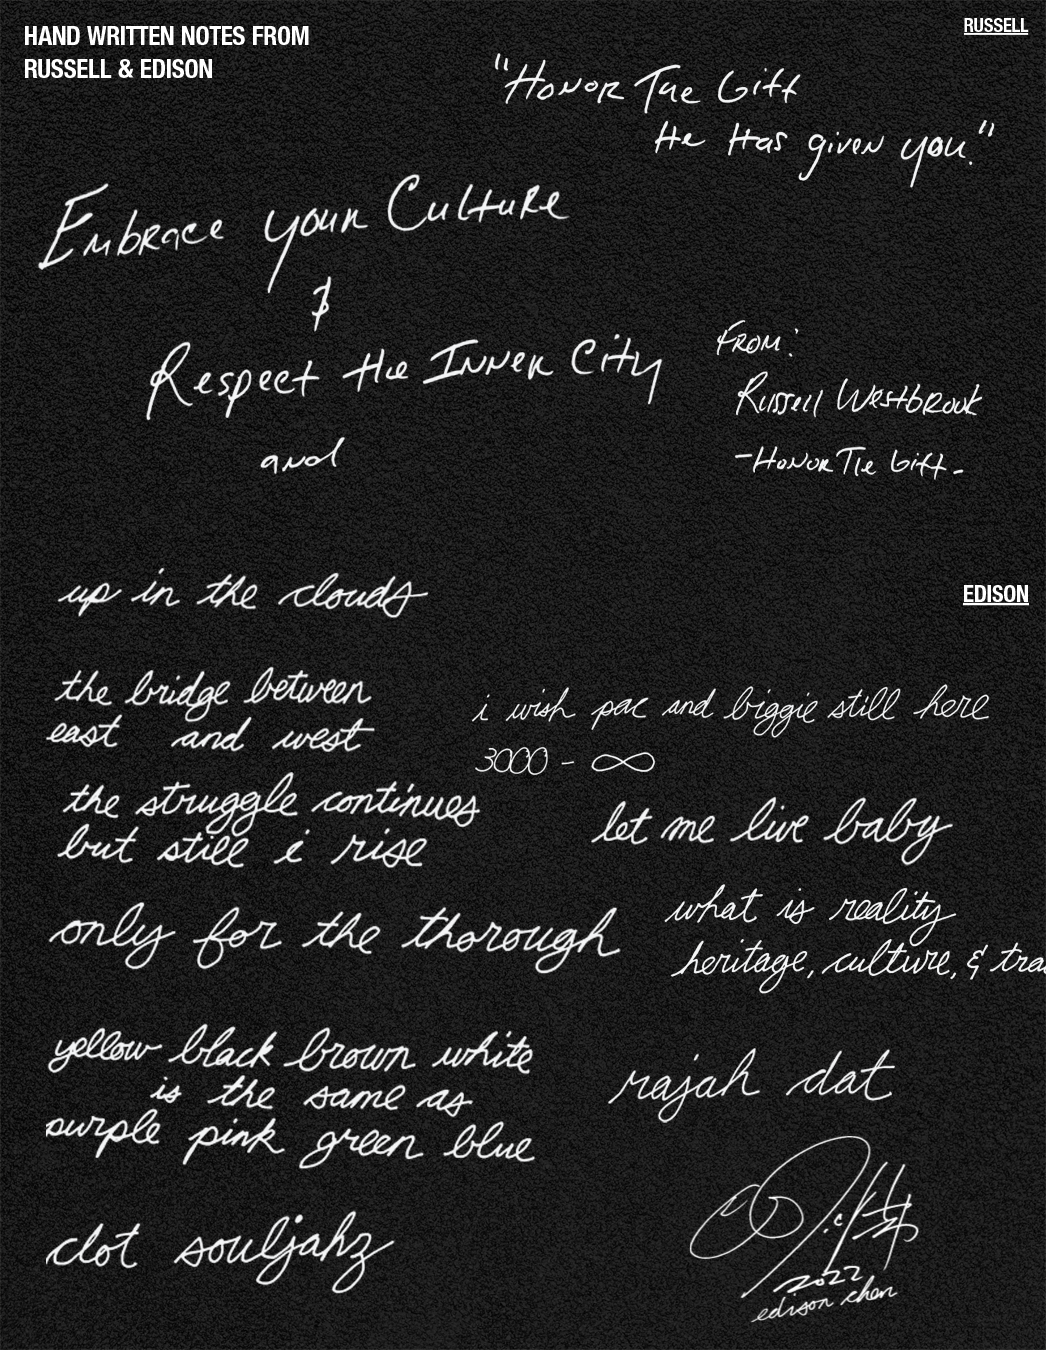 HAND WRITTEN NOTES FROM
RUSSELL & EDISON
RUSSELL
"Honor The Gift
He Has given you."
Embrace your Culture
&
Respect the Inner City
and
From:
Russell Westbrook
-Honor The Gift-
EDISON
up in the clouds
the bridge between
east and west
the struggle continues
but still i rise
only for the thorough
yellow black brown white
is the same as
purple pink green blue
clot souljahz
i wish pac and biggie still here
3000 - ∞
let me live baby
what is reality
heritage, culture, & tra
rajah dat
2022
edison chen